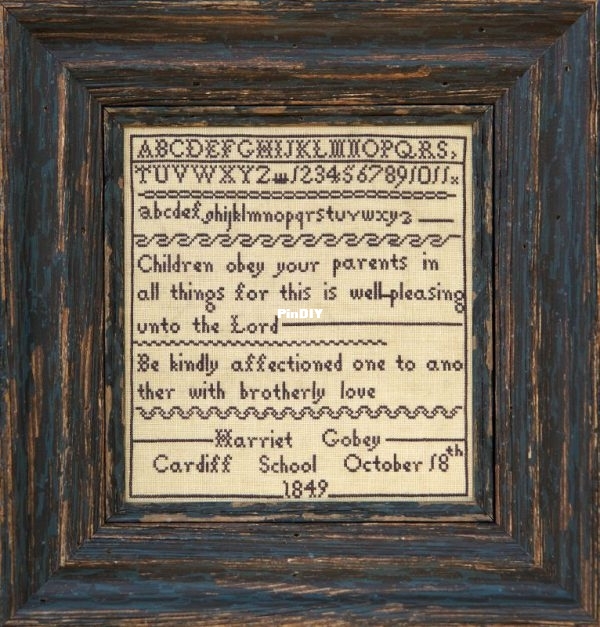 ABCDEFGHIJKLMNOPQRS,
TUVWXYZ 1234567891011x
abcdefghijklmnopqrstuvwxyz
Children obey your parents in
all things for this is well-pleasing
PinDIY
unto the Lord
Be kindly affectioned one to ano
ther with brotherly love
Harriet Gobey
Cardiff School October 18th
1849